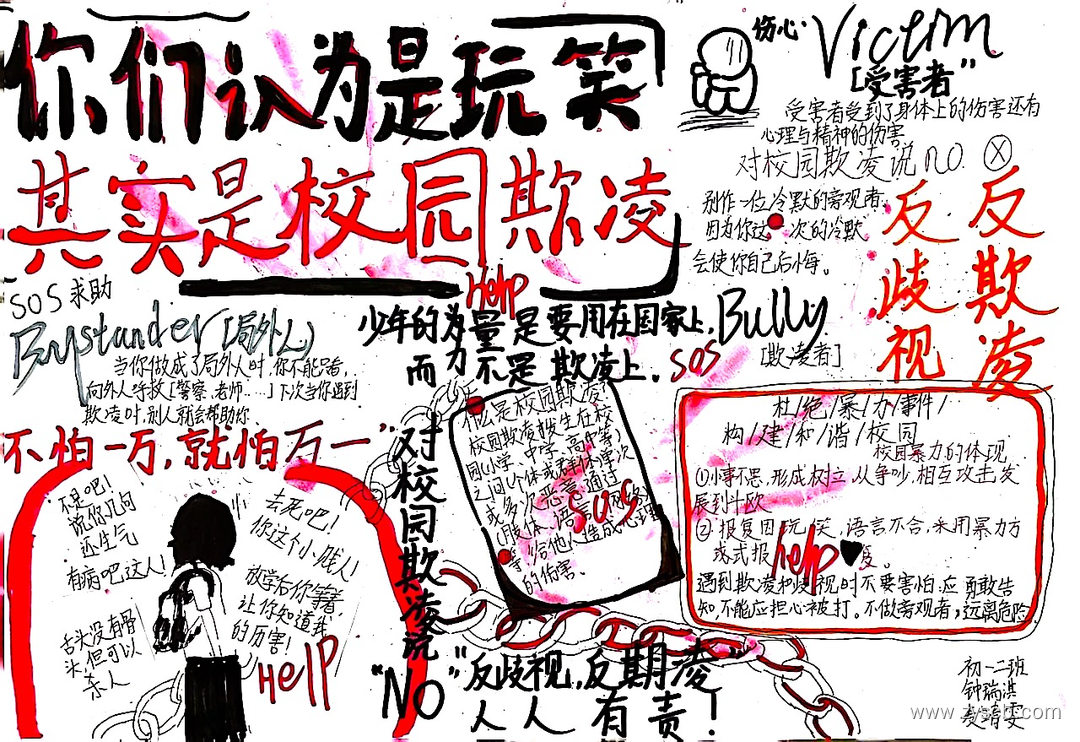 你们认为是玩笑
其实是校园欺凌
伤心
Victim
[受害者"
受害者受到了身体上的伤害还有
心理与精神的伤害
对校园欺凌说no.
别作一位冷默的旁观者
因为你这 次的冷默
会使你自己后悔。
反歧视
反欺凌
SOS 求助
Bystander [局外人)
当你做成了局外人时,你不能只看,
向外人呼救[警察、老师……]下次当你遇到
欺凌时,别人就会帮助你
不怕一万,就怕万一"
Help
少年的力量是要用在国家上,
而不是欺凌上.
SOS
Bully
[欺凌者]
不是吧!
说你几句
还生气
有病吧这人!
舌头没有骨
头,但可以
杀人
去死吧!
你这个小贱人!
放学后你等着,
让你知道我
的厉害!
HELP
对校园欺凌说
"NO"
什么是校园欺凌
校园欺凌指发生在校
园(小学、中学、高中等)
之间个体或群体单次
或多次恶意通过
(肢体、语言、网络)
等,给他人造成心理
的伤害、
SOS
杜/绝/暴/力/事件/
构/建/和/谐/校园
校园暴力的体现
①小事不忍,形成对立,从争吵,相互攻击,发
展到斗殴
② 报复因玩笑,语言不合,采用暴力方
式报 复。
help
遇到欺凌和歧视时不要害怕,应勇敢告
知,不能应担心被打。不做旁观者,远离危险
"反歧视,反期凌"
人人有责!
初一二班
钟瑞淇